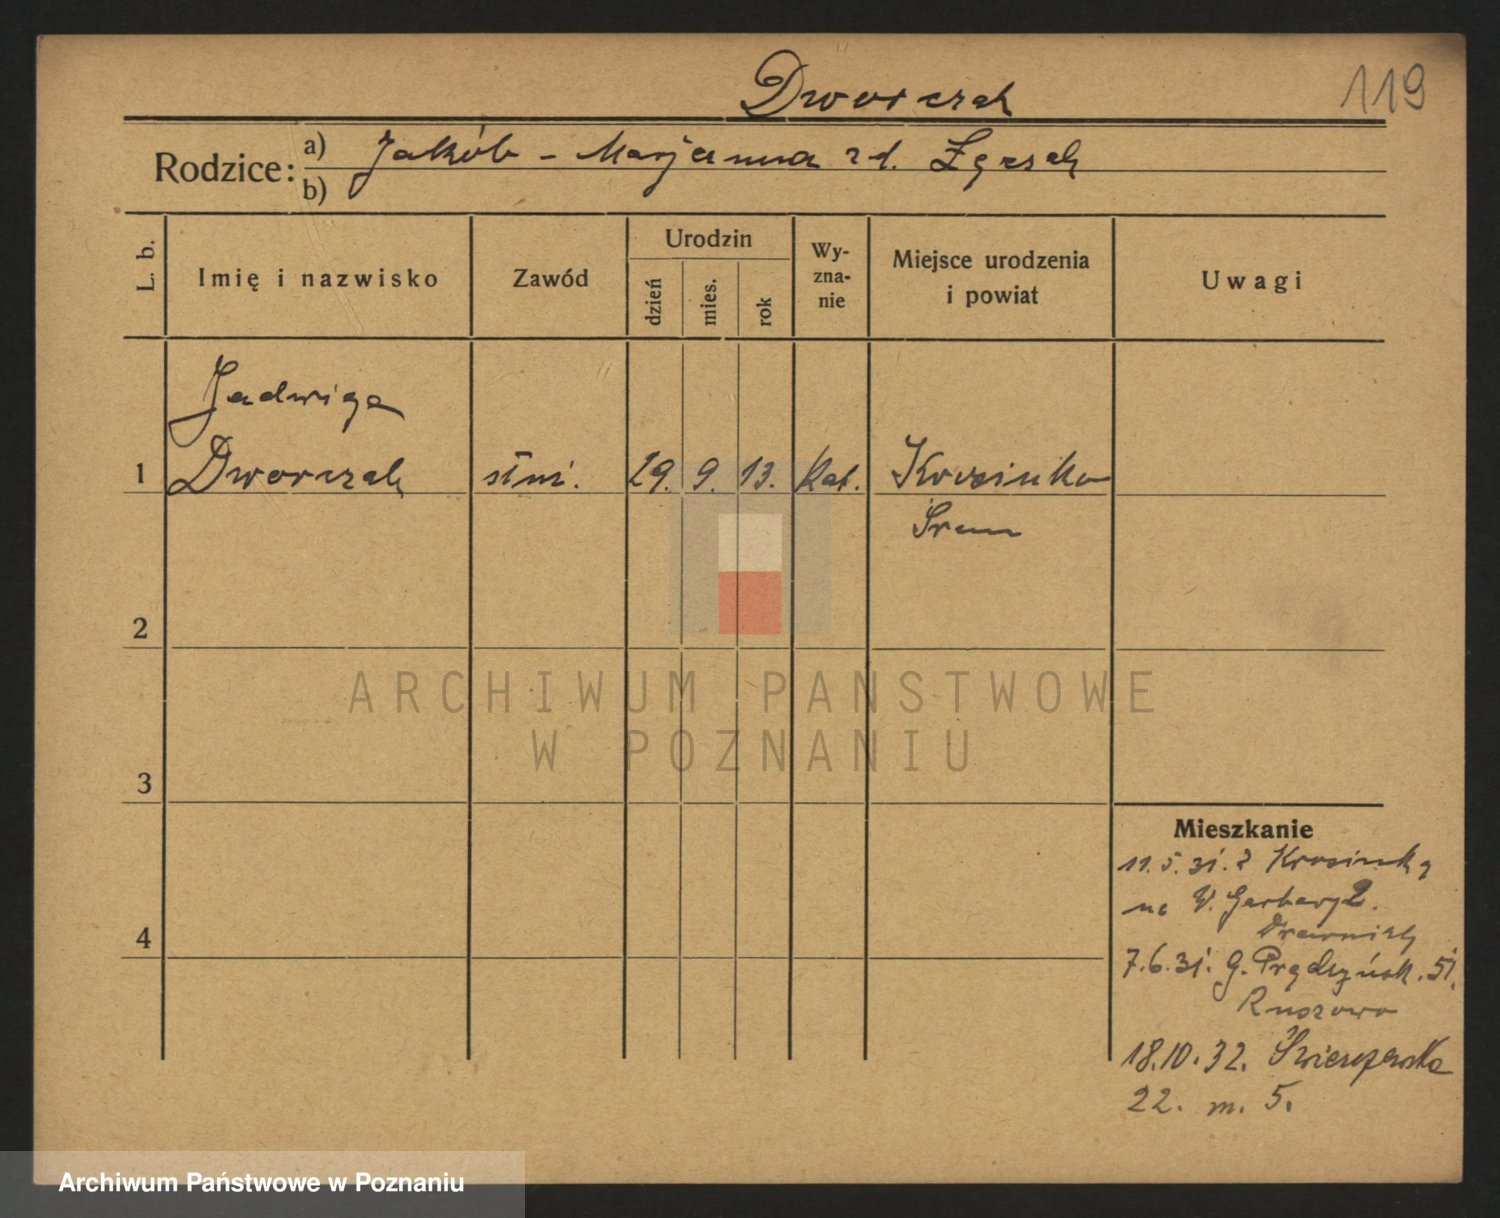 Dworczak
119
Rodzice:
a) Jakób - Marjanna zd.
b)
L. b.
Imię i nazwisko
Zawód
Urodzin
dzień
mies.
rok
Wy-
zna-
nie
Miejsce urodzenia
i powiat
Uwagi
Jadwiga
1 Dworczak służ. 29. 9. 13. Kat. Krosinko
Śrem
2
3
4
Mieszkanie
11.5.31. z Krosinka
na W. Garbary 2.
7.6.31. G. Prądzyńsk. 51.
18.10.32.
22. m. 5.
ARCHIWUM PAŃSTWOWE
W POZNANIU
Archiwum Państwowe w Poznaniu